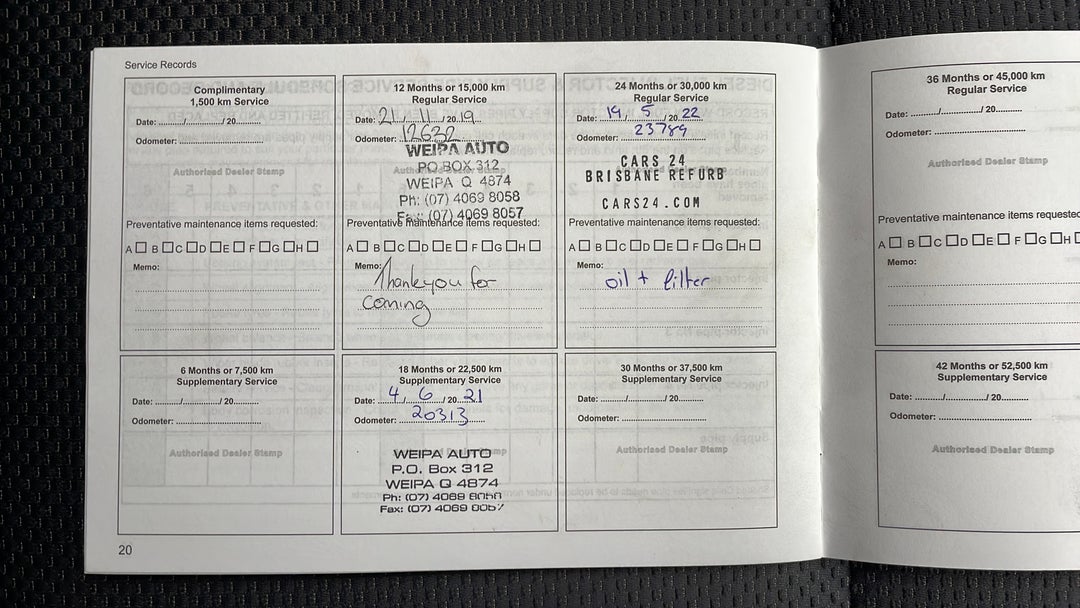 Service Records
Complimentary
1,500 km Service
Date: ......../......../ 20.........
Odometer: ..............................
Authorised Dealer Stamp
Preventative maintenance items requested:
A □ B □ C □ D □ E □ F □ G □ H □
Memo:
12 Months or 15,000 km
Regular Service
Date: 21 / 11 / 20 19
Odometer: 12632
WEIPA AUTO
PO BOX 312
WEIPA Q 4874
Ph: (07) 4069 8058
Fax: (07) 4069 8057
Preventative maintenance items requested:
A □ B □ C □ D □ E □ F □ G □ H □
Memo: Thankyou for
coming
24 Months or 30,000 km
Regular Service
Date: 19 / 5 / 20 22
Odometer: 23789
CARS 24
BRISBANE REFURB
CARS24.COM
Preventative maintenance items requested:
A □ B □ C □ D □ E □ F □ G □ H □
Memo:
oil + filter
36 Months or 45,000 km
Regular Service
Date: ......../......../ 20.........
Odometer: ..............................
Authorised Dealer Stamp
Preventative maintenance items requested
A □ B □ C □ D □ E □ F □ G □ H
Memo:
6 Months or 7,500 km
Supplementary Service
Date: ......../......../ 20.........
Odometer: ..............................
Authorised Dealer Stamp
18 Months or 22,500 km
Supplementary Service
Date: 4 / 6 / 20 21
Odometer: 20313
WEIPA AUTO
P.O. Box 312
WEIPA Q 4874
Ph: (07) 4069 8058
Fax: (07) 4069 8057
30 Months or 37,500 km
Supplementary Service
Date: ......../......../ 20.........
Odometer: ..............................
Authorised Dealer Stamp
42 Months or 52,500 km
Supplementary Service
Date: ......../......../ 20.........
Odometer: ..............................
Authorised Dealer Stamp
20